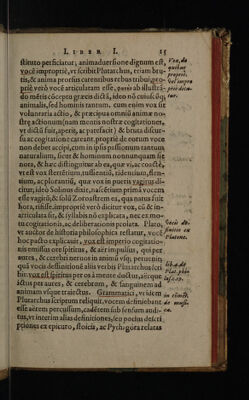 LIBER I. 15
stituto perficiatur, animaduersione dignum est,
vocē impropriè, vt scribit Plutarchus, etiam bru-
tis, & anima prorsus carentibus rebus tribui: pro-
priè verò vocē articulatam esse, quasi ab illustrā-
do mētis cōceptu græcis dictā, ideo nō cuiusq́;
animalis, sed hominis tantum. cum enim vox sit
voluntaria actio, & præcipua omniū animæ no-
stræ actionum (nam montis nostræ cogitationes,
vt dictū fuit, aperit, ac patefacit) & bruta discur-
su ac cogitatione careant, propriè de eorum voce
non debet accipi, cum in ipsis passionum tantum
naturalium, sicut & hominum nonnunquam sit
nota, & hæc distinguitur ab ea, quæ vi, ac coactè,
vt est vox stertētium, tussientiū, ridentium, flen-
tium, ac plorantiū, quæ vox in pueris vagitus di-
citur, ideo Solinus dixit, nascētium primam vocē
esse vagitū, & solū Zoroastrem ea, qua natus fuit
hora, risisse, impropriè verò dicitur vox, cū & in-
articulata sit, & syllabis nō explicata, nec ex mo-
tu cogitationis, ac deliberationis prolata. Plato,
vt auctor de historia philosophica testatur, vocē
hoc pacto explicauit, vox est imperio cogitatio-
nis emissus ore spiritus, & aër impulsus, qui per
aures, & cerebri neruos in animū vsq́; peruenit:
quā vocis definitionē aliis verbis Plutarchus scri-
bit, vox est spiritus per os à mente ductus, aëriśque
ictus per aures, & cerebrum, & sanguinem ad
animam vsque traiectus. Grammatici, vt idem
Plutarchus scriptum reliquit, vocem definiebant
esse aërem percussum, cadētem sub sensum aurū,
vt interim alias definitiones, seu potius descri-
ptiones ex epicuro, stoicis, ac Pythagora relatas
Vox, de
quibus
propriè,
vel impro
priè dica-
tur.
Vocis de-
finitio ex
Platone.
lib. 4. de
plac. phil.
in
de musi-
ca.